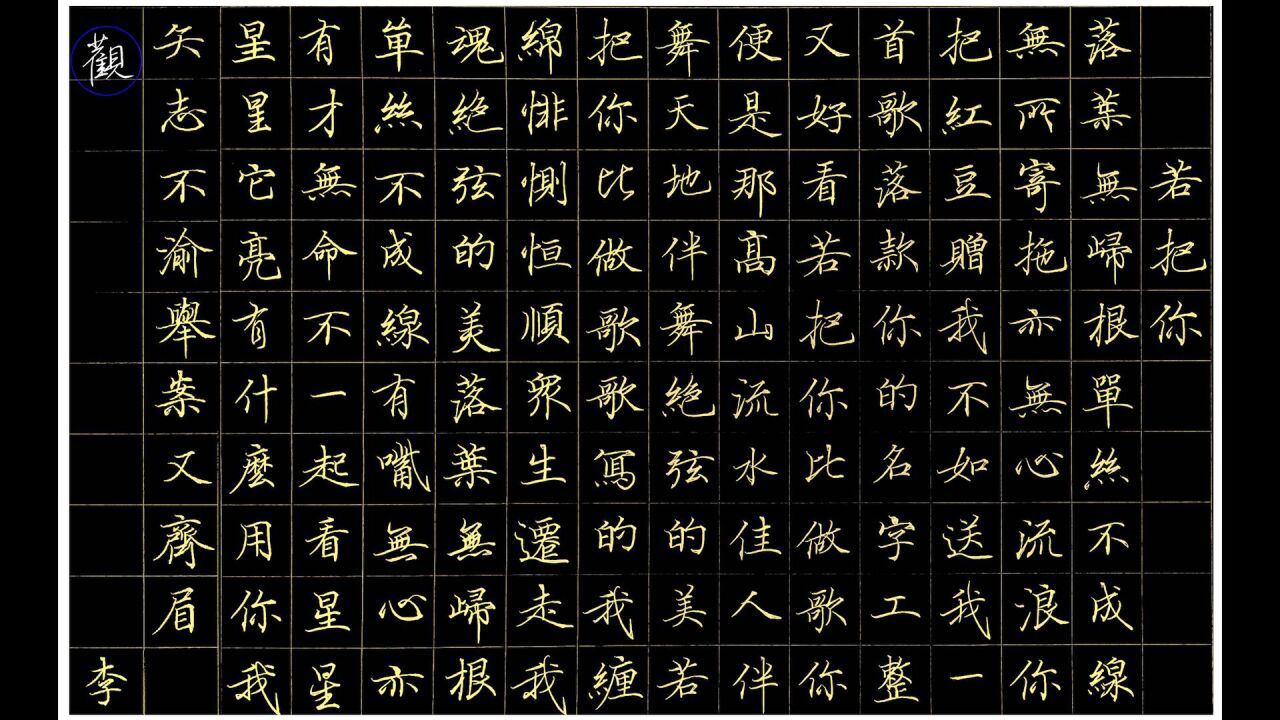 若把你
落葉無歸根單絲不成線
無所寄拖亦無心流浪你
把紅豆贈我不如送我一
首歌落款你的名字工整
又好看若把你比做歌你
便是那高山流水佳人伴
舞天地伴舞絕弦的美若
把你比做歌歌寫的我纏
綿悱惻恒順眾生遷走我
魂絕弦的美落葉無歸根
單絲不成線有嘴無心亦
有才無命不一起看星星
星星它亮有什麼用你我
矢志不渝舉案又齊眉
觀
李